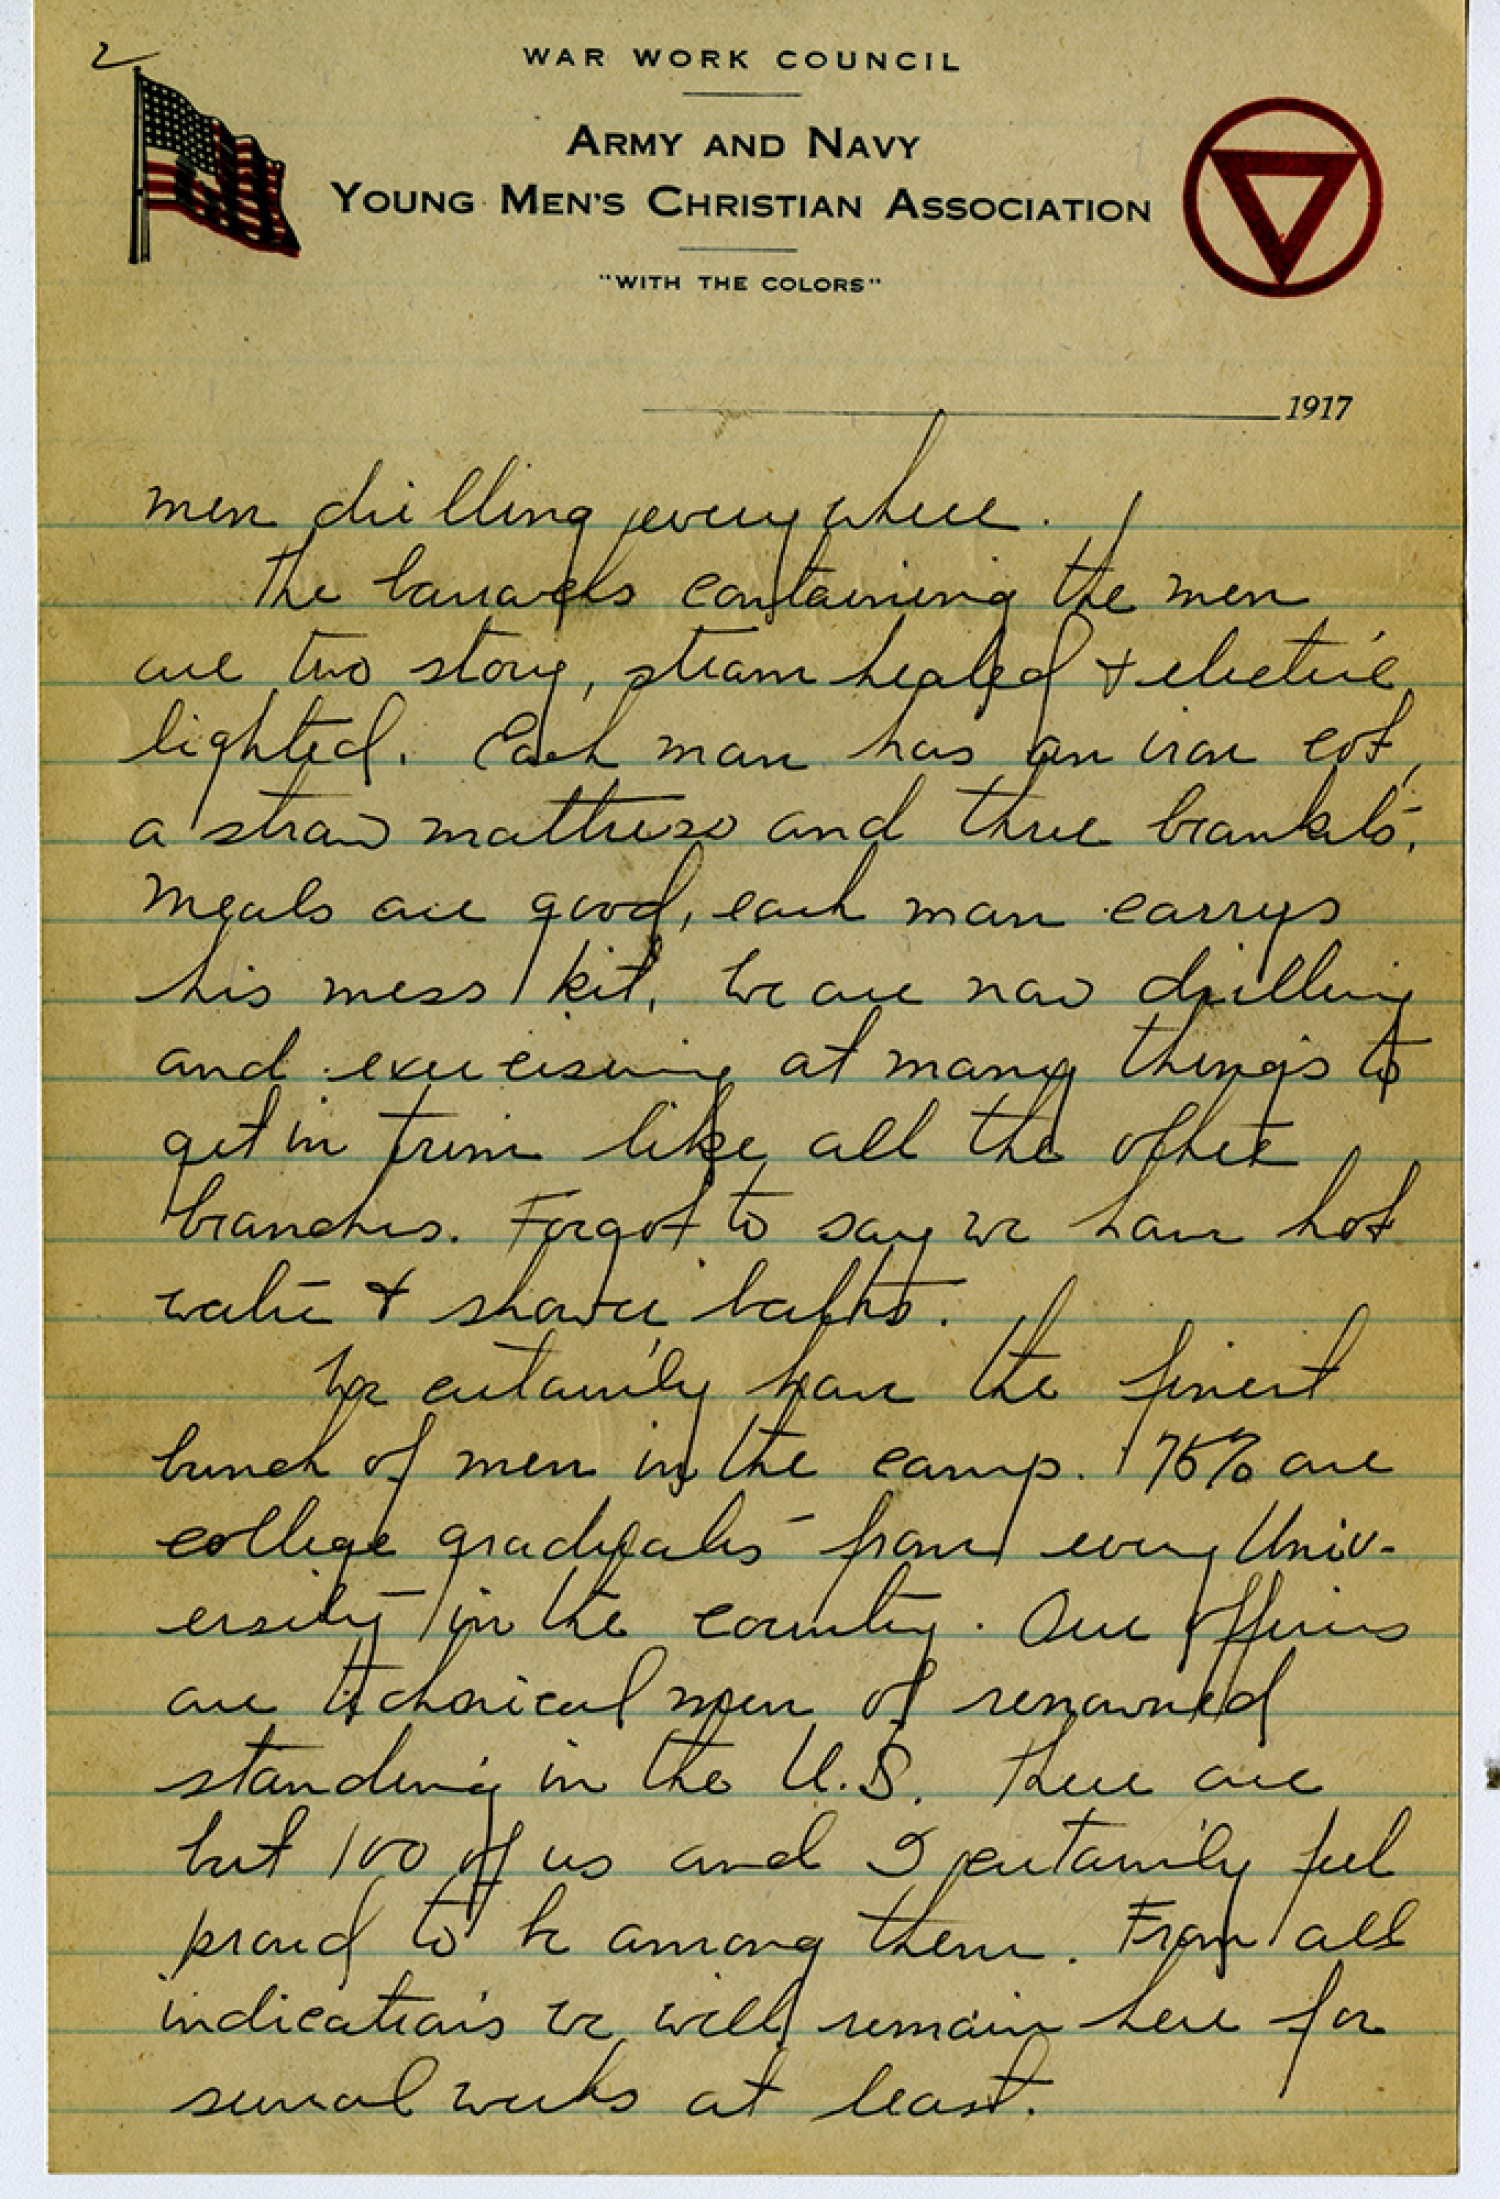 2
WAR WORK COUNCIL
ARMY AND NAVY
YOUNG MEN'S CHRISTIAN ASSOCIATION
"WITH THE COLORS"
1917
men drilling everywhere.
The barracks containing the men
are two story, steam heated & electric
lighted. Each man has an iron cot,
a straw mattress and three blankets.
Meals are good, each man carrys
his mess kit. We are now drilling
and exercising at many things to
get in trim like all the other
branches. Forgot to say we have hot
water & shower baths.
We certainly have the finest
bunch of men in the camp. 75% are
college graduates from every Univ-
ersity in the country. Our officers
are technical men of renowned
standing in the U.S. There are
but 100 of us and I certainly feel
proud to be among them. From all
indications we will remain here for
several weeks at least.